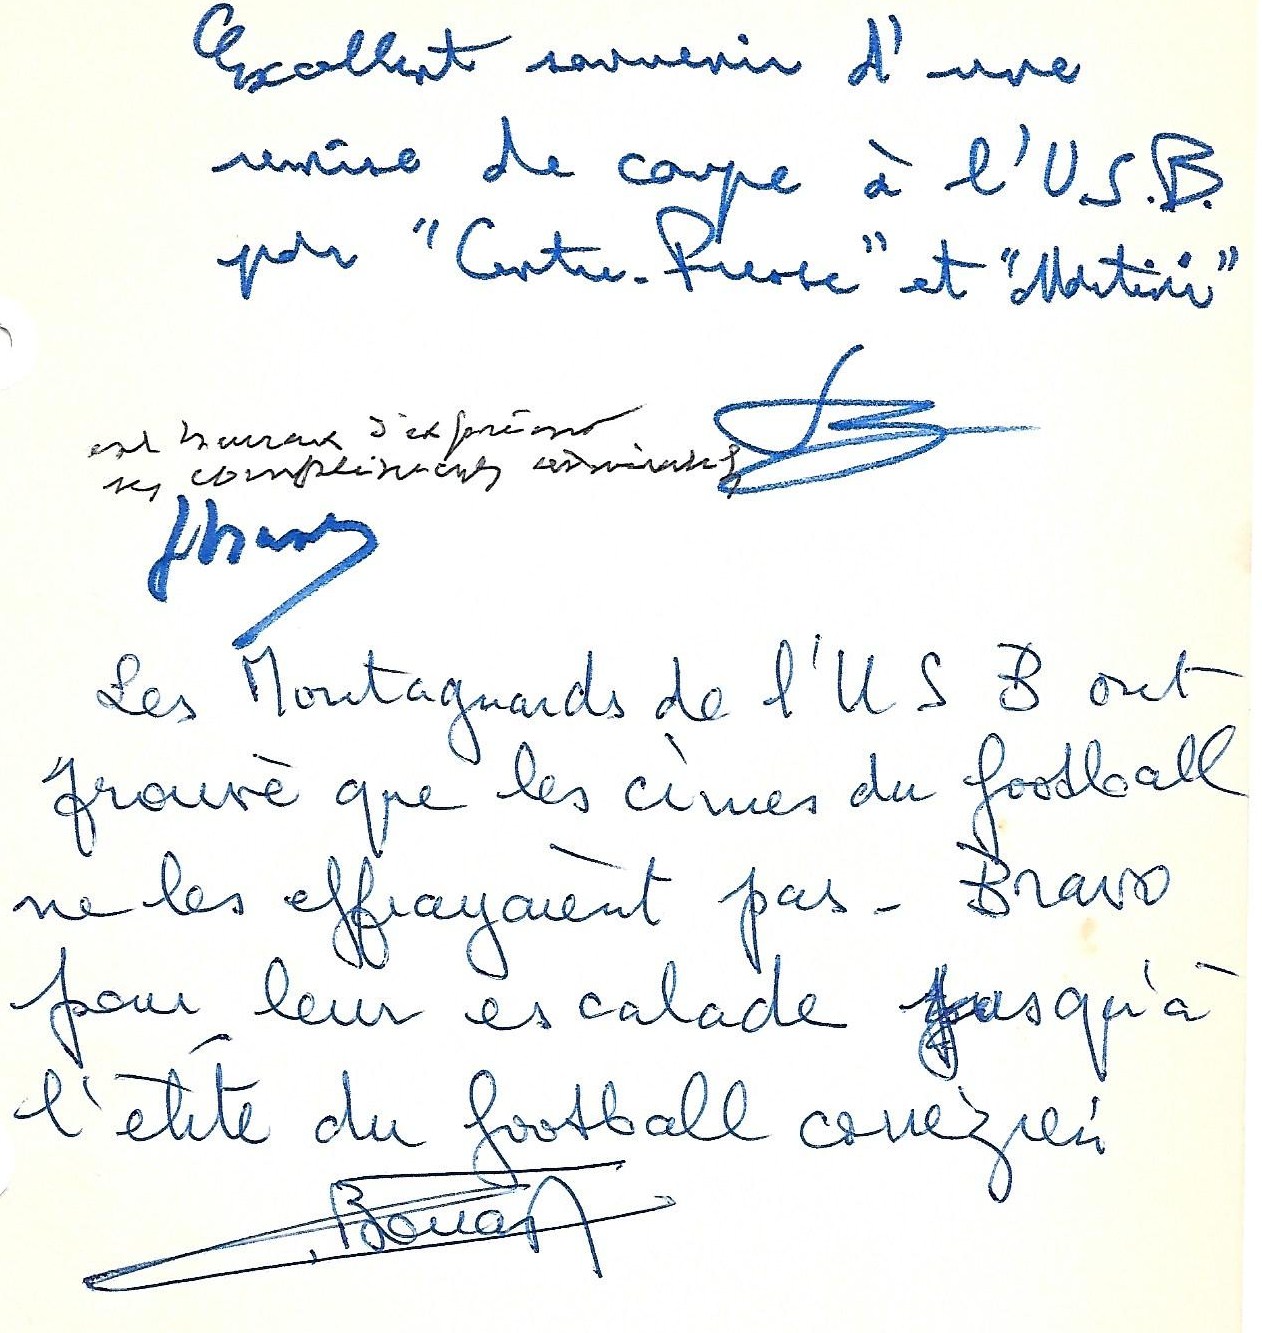 Excellent souvenir d'une
remise de coupe à l'U.S.B.
par "Centre-Presse" et "Martini"
est heureux d'exprimer
ses compliments admiratifs
Les Montagnards de l'U S B ont
prouvé que les cîmes du football
ne les effrayaient pas - Bravo
pour leur escalade jusqu'à
l'élite du football corrézien